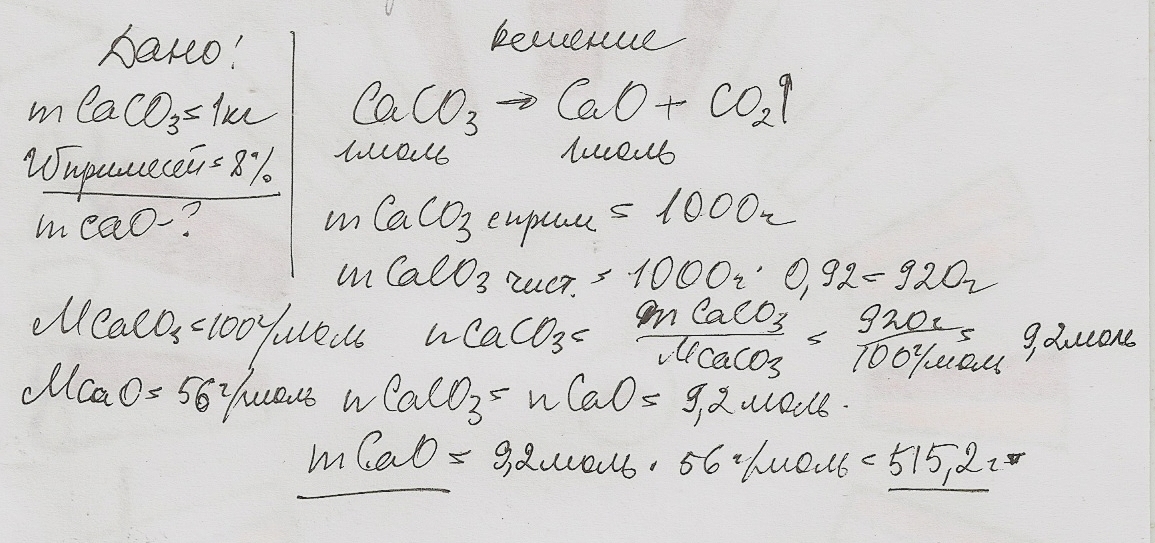 Дано:
m CaCO3 = 1кг
W примесей = 8%
m CaO - ?
Решение
CaCO3 → CaO + CO2↑
1моль 1моль
m CaCO3 с прим = 1000г
m CaCO3 чист. = 1000г · 0,92 = 920г
M CaCO3 = 100г/моль n CaCO3 = m CaCO3 / M CaCO3 = 920г / 100г/моль = 9,2моль
M CaO = 56г/моль n CaCO3 = n CaO = 9,2 моль.
m CaO = 9,2моль · 56г/моль = 515,2г